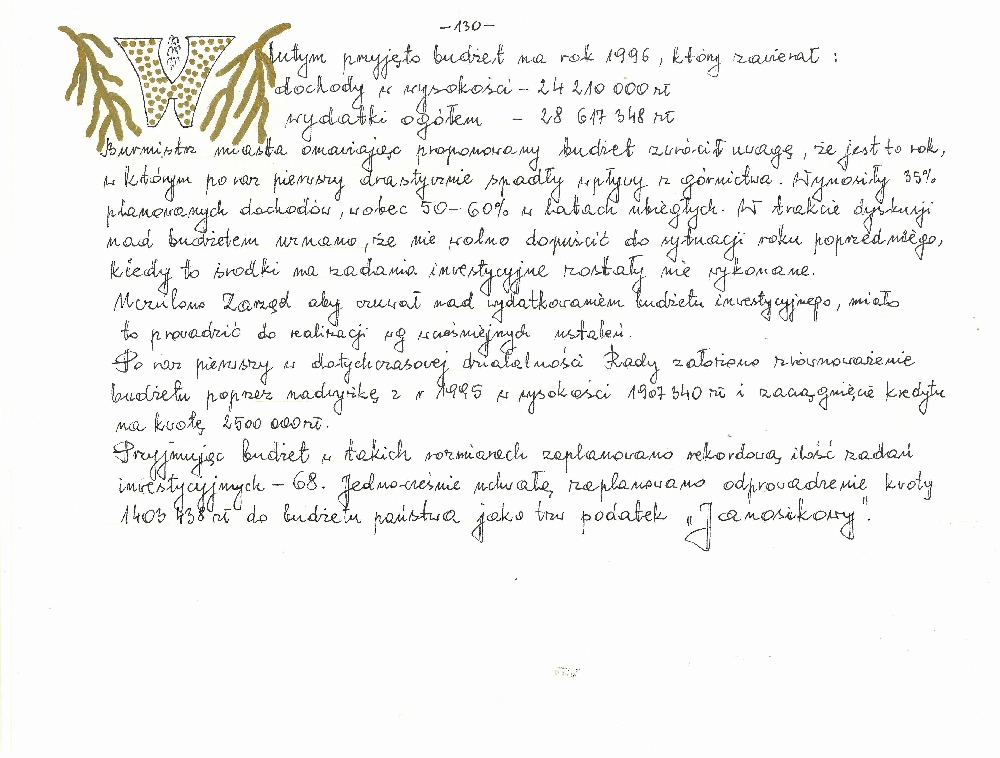 -130-
W lutym przyjęto budżet na rok 1996, który zawierał :
dochody w wysokości - 24 210 000 zł
wydatki ogółem - 28 617 348 zł
Burmistrz miasta omawiając proponowany budżet zwrócił uwagę, że jest to rok,
w którym po raz pierwszy drastycznie spadły wpływy z górnictwa. Wynosiły 35%
planowanych dochodów, wobec 50-60% w latach ubiegłych. W trakcie dyskusji
nad budżetem uznano, że nie wolno dopuścić do sytuacji roku poprzedniego,
kiedy to środki na zadania inwestycyjne zostały nie wykonane.
Uczulono Zarząd aby czuwał nad wydatkowaniem budżetu inwestycyjnego, miało
to prowadzić do realizacji wg wcześniejszych ustaleń.
Po raz pierwszy w dotychczasowej działalności Rady założono zrównoważenie
budżetu poprzez nadwyżkę z r 1995 w wysokości 1907 340 zł i zaciągnięcie kredytu
na kwotę 2500 000 zł.
Przyjmując budżet w takich rozmiarach zaplanowano rekordową ilość zadań
inwestycyjnych - 68. Jednocześnie uchwałą zaplanowano odprowadzenie kwoty
1403 438 zł do budżetu państwa jako tzw podatek „Janosikowy".